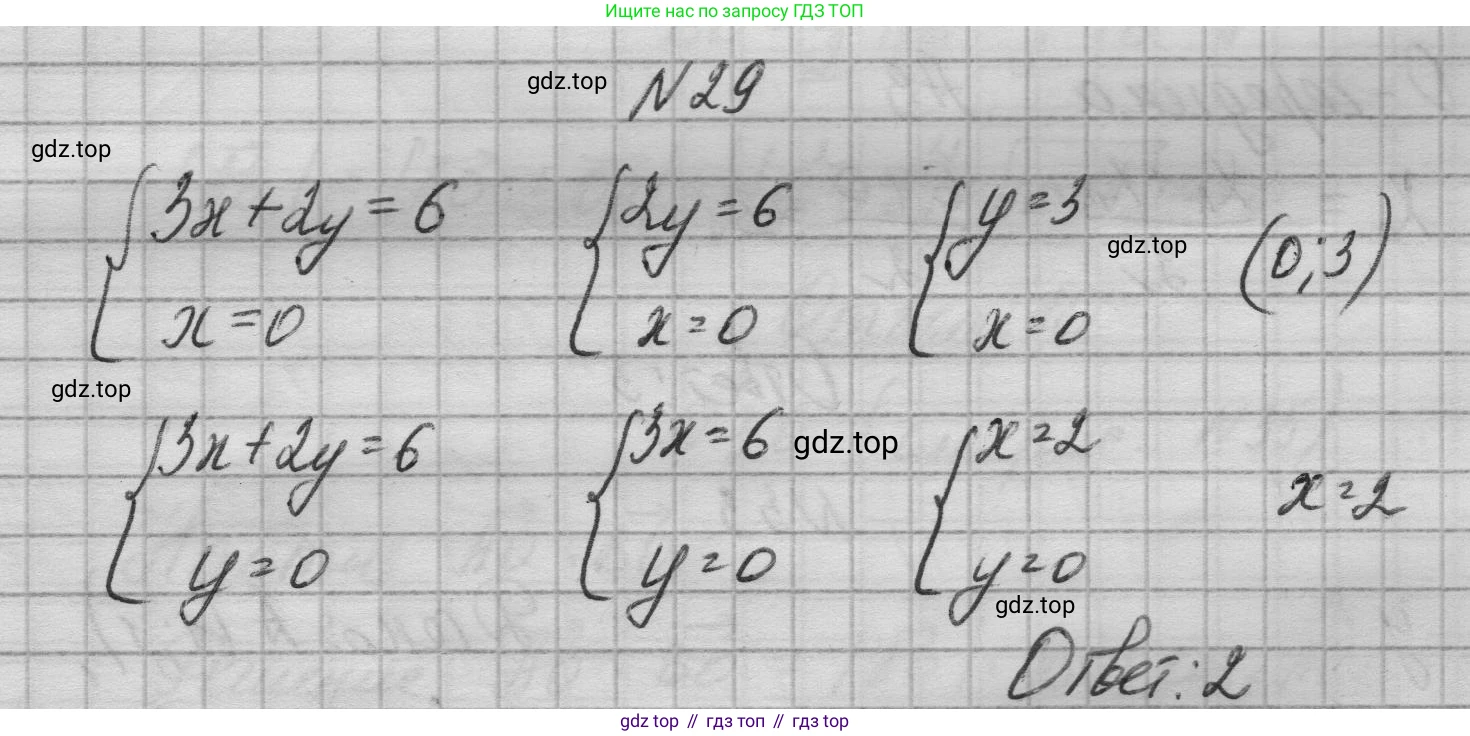 Ищите нас по запросу ГДЗ ТОП
gdz.top
N 29
gdz.top
{ 3x + 2y = 6 { 2y = 6 { y = 3
gdz.top (0; 3)
x = 0 x = 0 x = 0
gdz.top
{ 3x + 2y = 6 { 3x = 6 gdz.top { x = 2
x = 2
y = 0 y = 0 y = 0
gdz.top
Ответ: 2
gdz top // гдз топ // гдз top